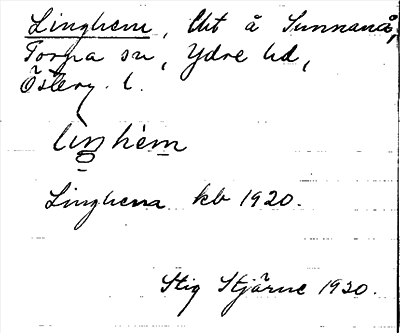 Linghem, Lht å Sunnanå,
Torpa sn, Ydre hd,
Österg. l.
liŋhèm
Linghem kb 1920.
Stig Stjärne 1920.